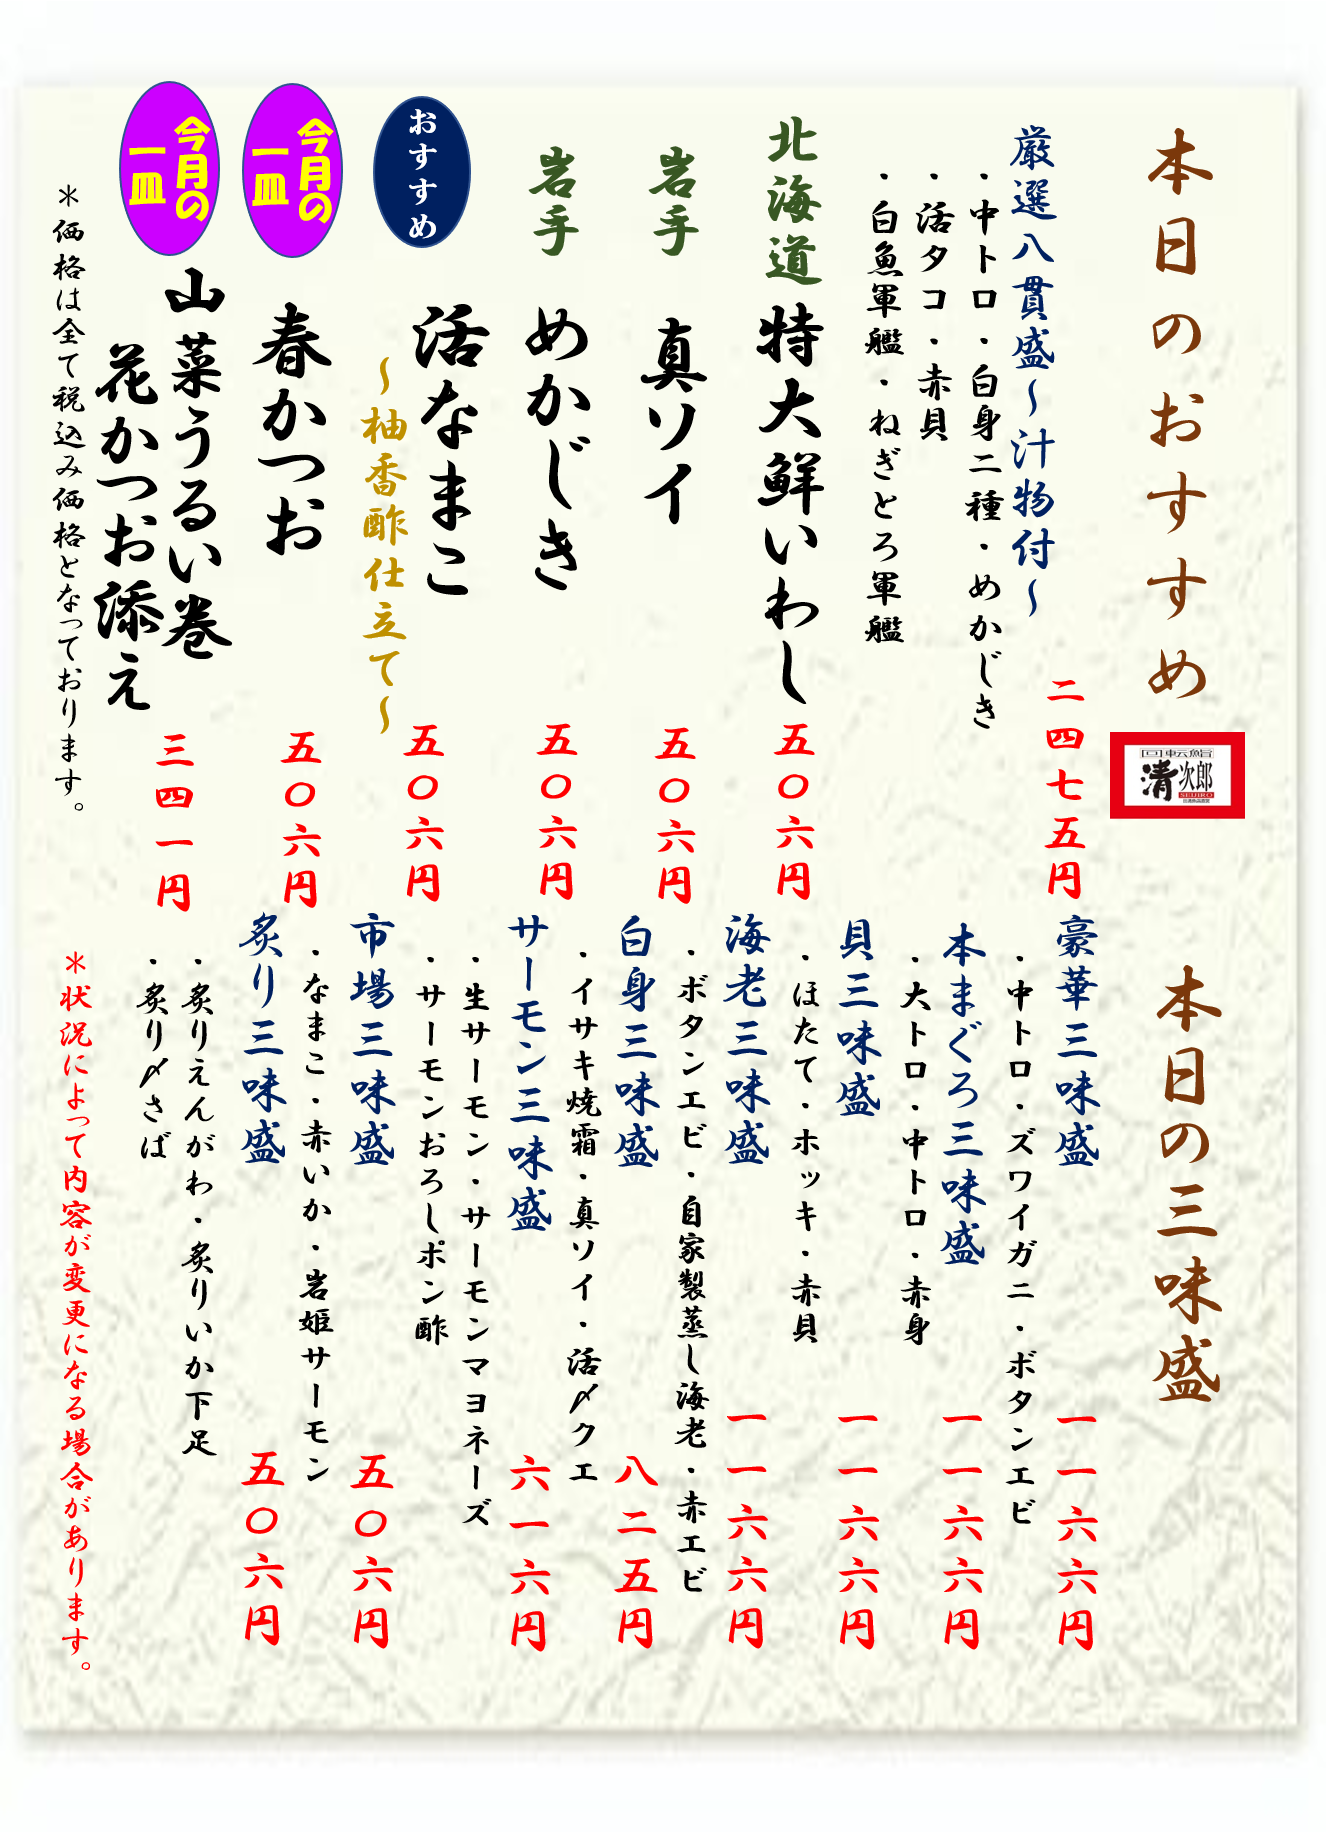 本日のおすすめ
回転鮨
清次郎
SEIJIRO
厳選八貫盛～汁物付～
二四七五円
・中トロ・白身二種・めかじき
・活タコ・赤貝
・白魚軍艦・ねぎとろ軍艦
北海道 特大鮮いわし 五〇六円
岩手 真ソイ 五〇六円
岩手 めかじき 五〇六円
おすすめ 活なまこ 五〇六円
～柚香酢仕立て～
今月の
一皿
春かつお 五〇六円
今月の
一皿
山菜うるい巻
花かつお添え
三四一円
＊価格は全て税込み価格となっております。
本日の三味盛
豪華三味盛 一一六六円
・中トロ・ズワイガニ・ボタンエビ
本まぐろ三味盛 一一六六円
・大トロ・中トロ・赤身
貝三味盛 一一六六円
・ほたて・ホッキ・赤貝
海老三味盛 一一六六円
・ボタンエビ・自家製蒸し海老・赤エビ
白身三味盛 八二五円
・イサキ焼霜・真ソイ・活〆クエ
サーモン三味盛 六一六円
・生サーモン・サーモンマヨネーズ
・サーモンおろしポン酢
市場三味盛 五〇六円
・なまこ・赤いか・岩姫サーモン
炙り三味盛 五〇六円
・炙りえんがわ・炙りいか下足
・炙り〆さば
＊状況によって内容が変更になる場合があります。